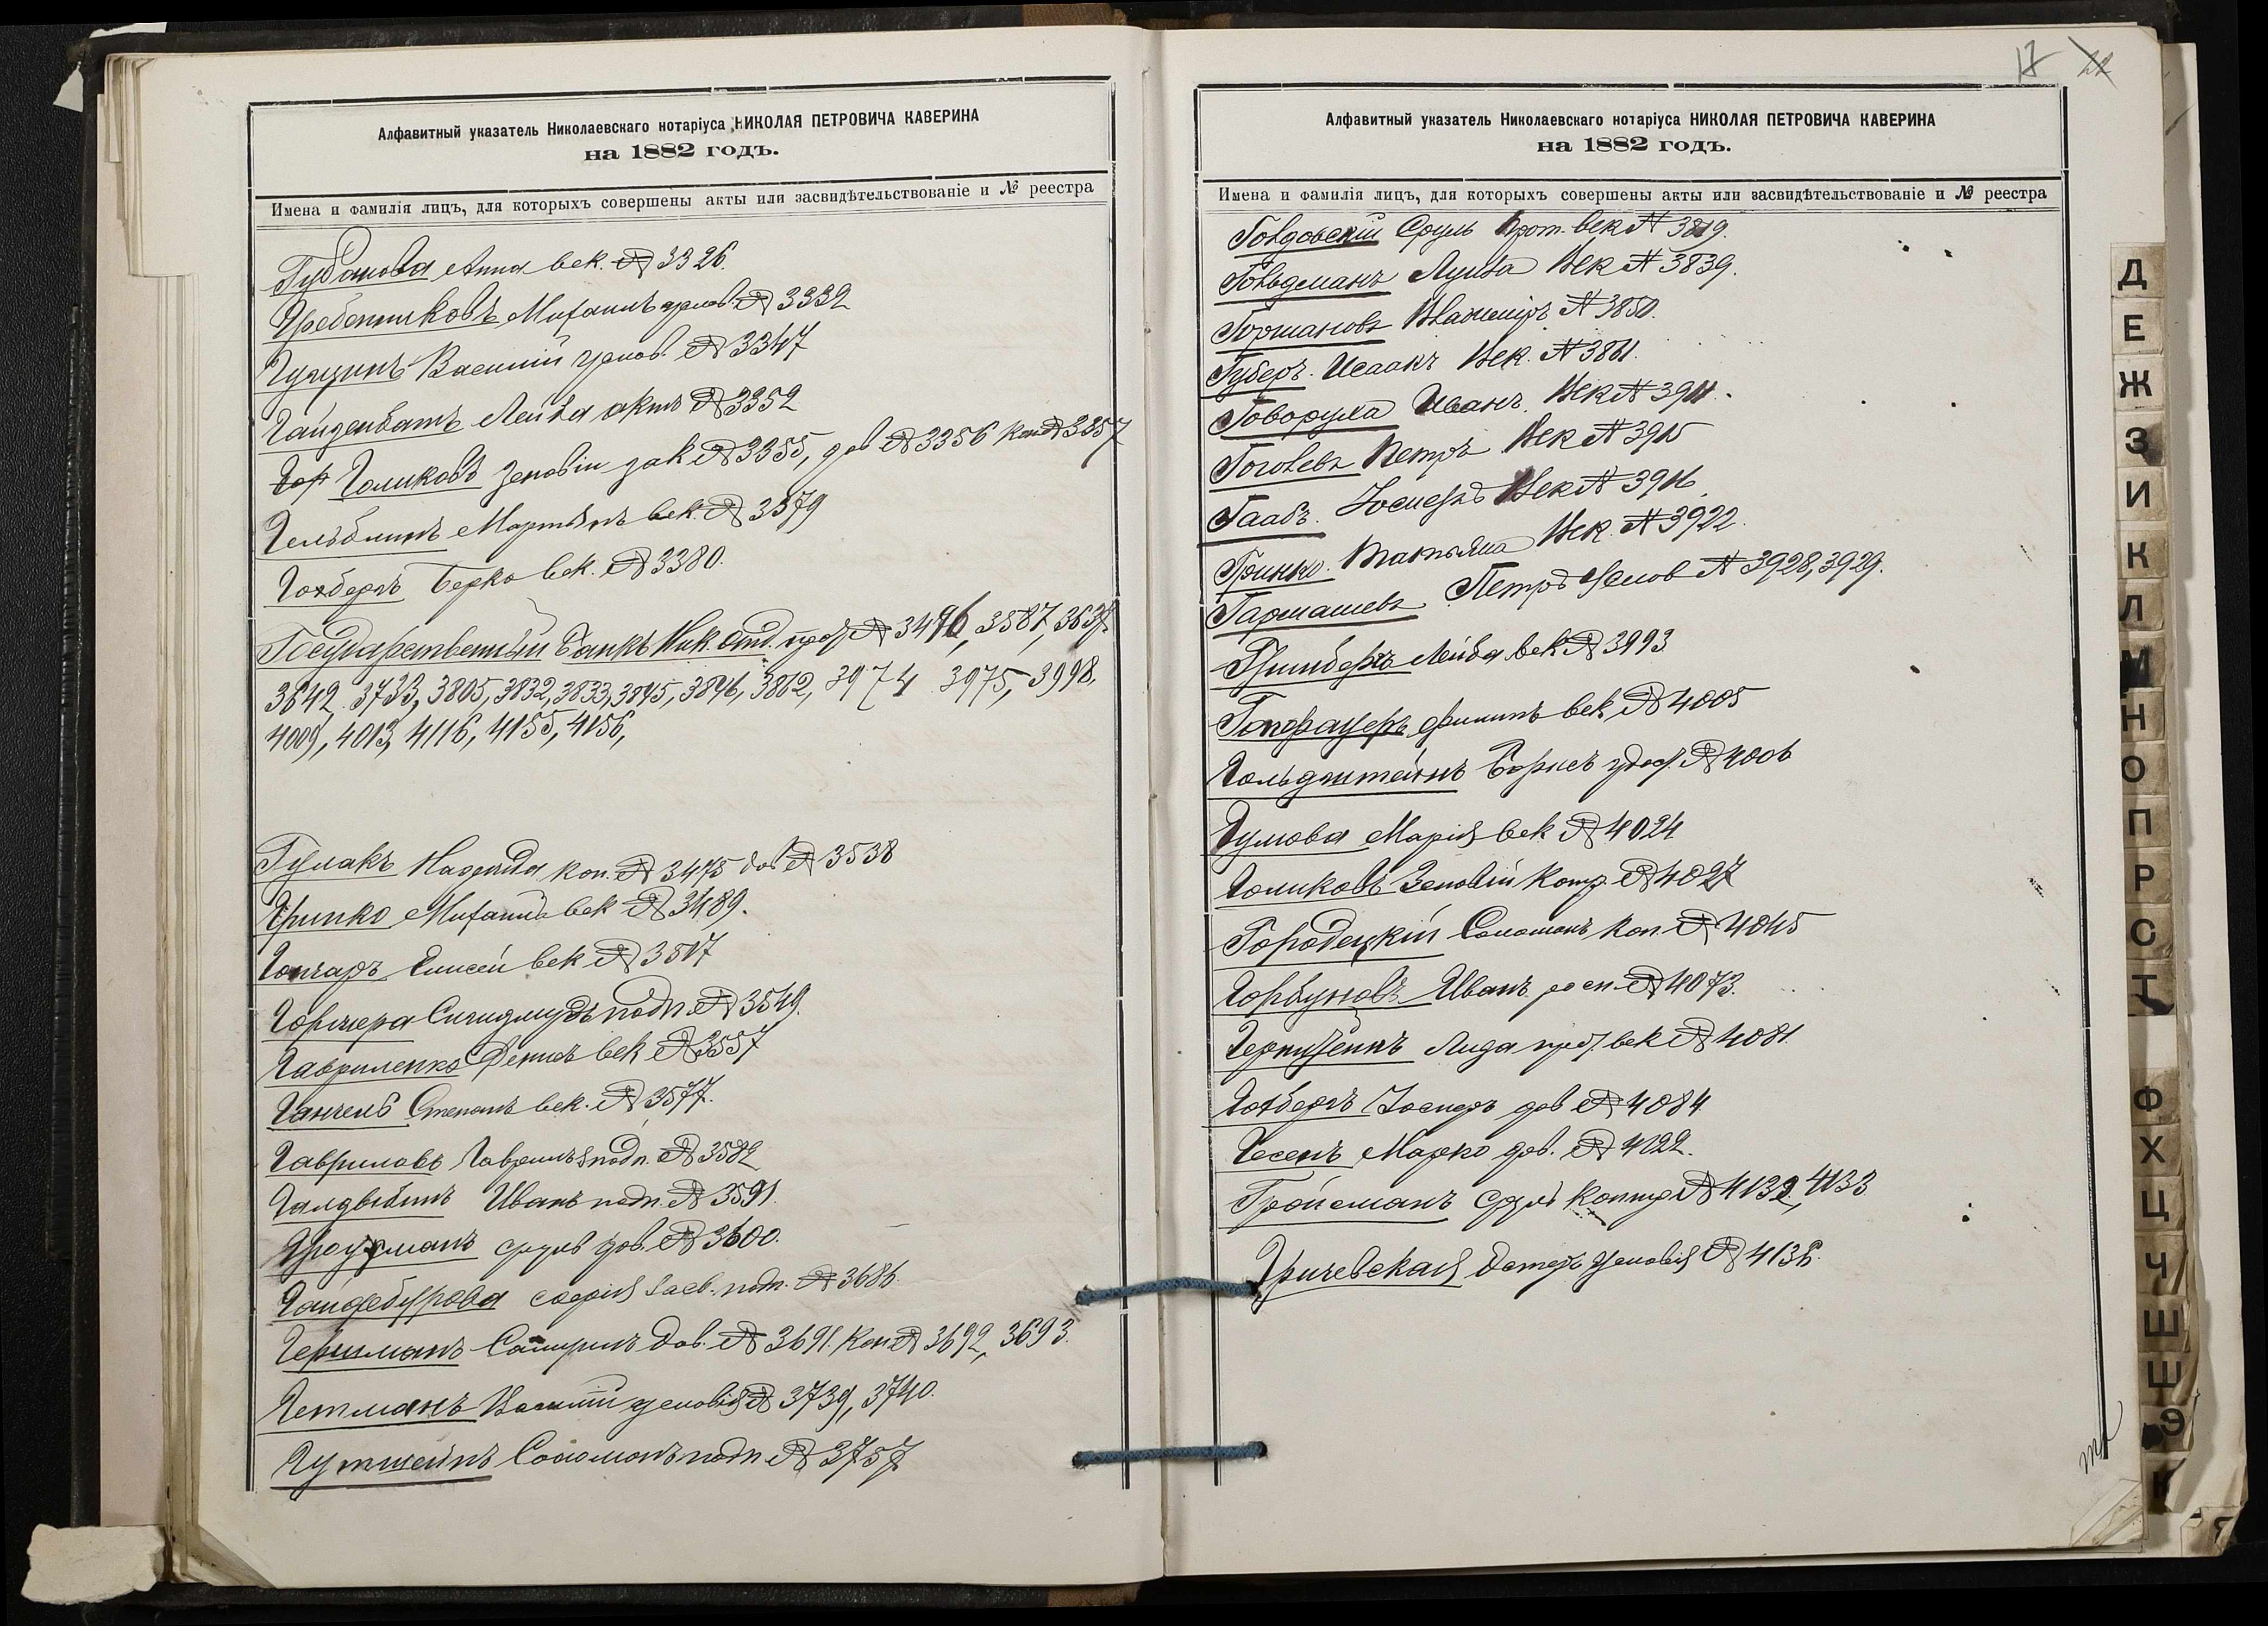 Алфавитный указатель Николаевскаго нотаріуса НИКОЛАЯ ПЕТРОВИЧА КАВЕРИНА
на 1882 годъ.
Имена и фамилія лицъ, для которыхъ совершены акты или засвидѣтельствованіе и № реестра
Губанова Анна век. № 3326.
Гребенниковъ Михаилъ № 3332
Василій услов. № 3347
Лейба актъ № 3352
Голиковъ Зеновій зак № 3355, дов № 3356 коп № 3357
Мартынъ век. № 3379
Гохбергъ Берко век. № 3380.
Государственный Банкъ Ник. Отд. прот № 3496, 3587, 3637
3642. 3733, 3805, 3832, 3833, 3845, 3846, 3862, 3974 3975, 3998,
4009, 4013, 4116, 4155, 4156,
Гулакъ Надежда коп. № 3475 дов № 3538
Гринко Михаилъ век № 3489.
Гончаръ Елисей век № 3517
Сигизмундъ подп. № 3549.
Гавриленко Денисъ век № 3557
Степанъ век. № 3577.
Гавриловъ Гавріилъ подп. № 3582
Иванъ подп. № 3591.
Сруль дов. № 3600.
Гайдебурова Софія засв. подп. № 3686
Гершманъ дов. № 3691. Коп № 3692, 3693.
Гетманъ Василій условія № 3739, 3740.
Гутштейнъ Соломонъ подп № 3757
17
Алфавитный указатель Николаевскаго нотаріуса НИКОЛАЯ ПЕТРОВИЧА КАВЕРИНА
на 1882 годъ.
Имена и фамилія лицъ, для которыхъ совершены акты или засвидѣтельствованіе и № реестра
Сруль Прот. век № 3819.
Гольдманъ Век № 3839.
Владиміръ № 3850.
Губеръ. Исаакъ Век. № 3861.
Говоруха Иванъ. Век № 3911.
Гоголевъ Петръ Век № 3915
Гаабъ. Іосифъ Век № 3916
Гринко. Татьяна Век. № 3922.
Гармашевъ Петръ Услов № 3928, 3929.
Гринбергъ Лейба век № 3993
Филипъ век № 4005
Гольдштейнъ Борисъ удос. № 4006
Гумова Марія век № 4024
Голиковъ Зеновій Контр. № 4027
Городецкій Соломонъ коп. № 4045
Горбуновъ Иванъ росп. № 4073.
Лида прот. век № 4081.
Гохбергъ Іосифъ дов № 4084.
Гесенъ Марко дов. № 4122.
Гройсманъ Сруль контр № 4132, 4133
Гричевская Эстеръ Условія № 4136.
Д
Е
Ж
З
И
К
Л
М
Н
О
П
Р
С
Т
Ф
Х
Ц
Ч
Ш
Щ
Э